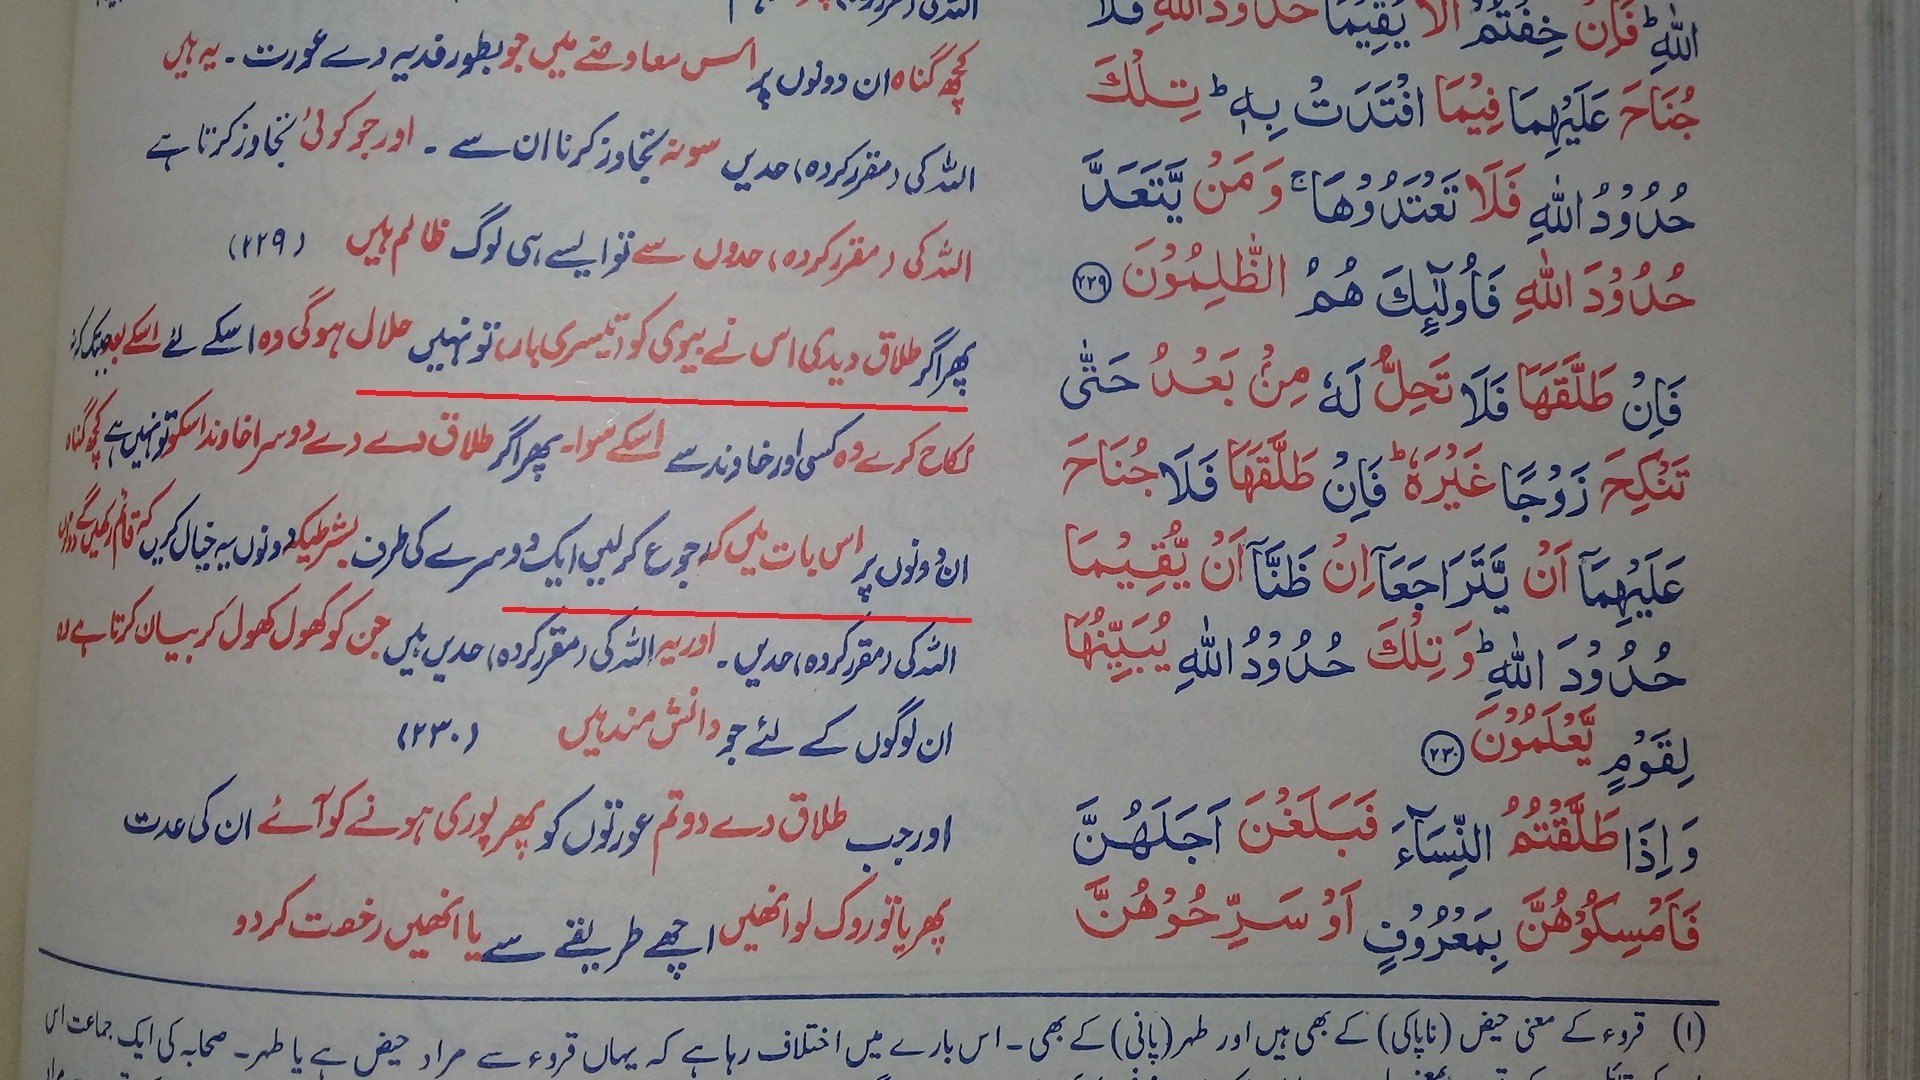 اللهِ ؕ فَاِنْ خِفْتُمْ اَلَّا يُقِيْمَا حُدُوْدَ اللهِ فَلَا
جُنَاحَ عَلَيْهِمَا فِيْمَا افْتَدَتْ بِهٖ ؕ تِلْكَ
حُدُوْدُ اللهِ فَلَا تَعْتَدُوْهَا ۚ وَمَنْ يَّتَعَدَّ
حُدُوْدَ اللهِ فَاُولٰٓئِكَ هُمُ الظّٰلِمُوْنَ ﴿۲۲۹﴾
فَاِنْ طَلَّقَهَا فَلَا تَحِلُّ لَهٗ مِنْۢ بَعْدُ حَتّٰى
تَنْكِحَ زَوْجًا غَيْرَهٗ ؕ فَاِنْ طَلَّقَهَا فَلَا جُنَاحَ
عَلَيْهِمَآ اَنْ يَّتَرَاجَعَآ اِنْ ظَنَّآ اَنْ يُّقِيْمَا
حُدُوْدَ اللهِ ؕ وَتِلْكَ حُدُوْدُ اللهِ يُبَيِّنُهَا
لِقَوْمٍ يَّعْلَمُوْنَ ﴿۲۳۰﴾
وَاِذَا طَلَّقْتُمُ النِّسَآءَ فَبَلَغْنَ اَجَلَهُنَّ
فَاَمْسِكُوْهُنَّ بِمَعْرُوْفٍ اَوْ سَرِّحُوْهُنَّ
کچھ گناہ ان دونوں پر اس معاوضے میں جو بطور فدیہ دے عورت ۔ یہ ہیں
اللہ کی (مقرر کردہ) حدیں سو نہ تجاوز کرنا ان سے ۔ اور جو کوئی تجاوز کرتا ہے
اللہ کی (مقرر کردہ) حدوں سے تو ایسے ہی لوگ ظالم ہیں (۲۲۹)
پھر اگر طلاق دیدی اس نے بیوی کو (تیسری بار) تو نہیں حلال ہوگی وہ اسکے لئے اسکے بعد جبتک کہ نہ
نکاح کرے وہ کسی اور خاوند سے اسکے سوا۔ پھر اگر طلاق دے دے دوسرا خاوند اسکو تو نہیں ہے کچھ گناہ
ان دونوں پر اس بات میں کہ رجوع کرلیں ایک دوسرے کی طرف بشرطیکہ دونوں یہ خیال کریں کہ قائم رکھیں گے دونوں
اللہ کی (مقرر کردہ) حدیں ۔ اور یہ اللہ کی (مقرر کردہ) حدیں ہیں جن کو کھول کھول کر بیان کرتا ہے وہ
ان لوگوں کے لئے جو دانش مند ہیں (۲۳۰)
اور جب طلاق دے دو تم عورتوں کو پھر پوری ہونے کو آئے ان کی عدت
پھر یا تو روک لو انھیں اچھے طریقے سے یا انھیں رخصت کردو
(۱) قروء کے معنی حیض (ناپاکی) کے بھی ہیں اور طہر (پانی) کے بھی ۔ اس بارے میں اختلاف رہا ہے کہ یہاں قروء سے مراد حیض ہے یا طہر۔ صحابہ کی ایک جماعت اس